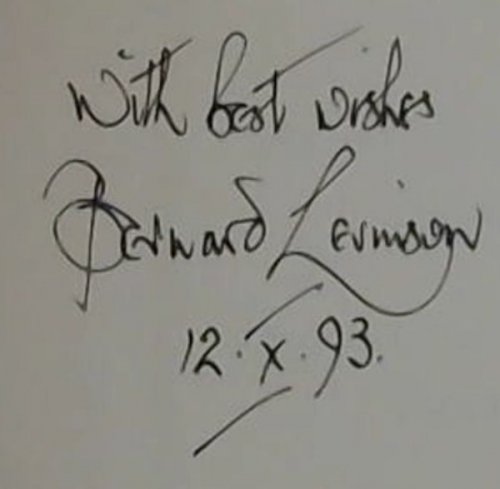 With best wishes
Bernard Levinson
12.X.93.